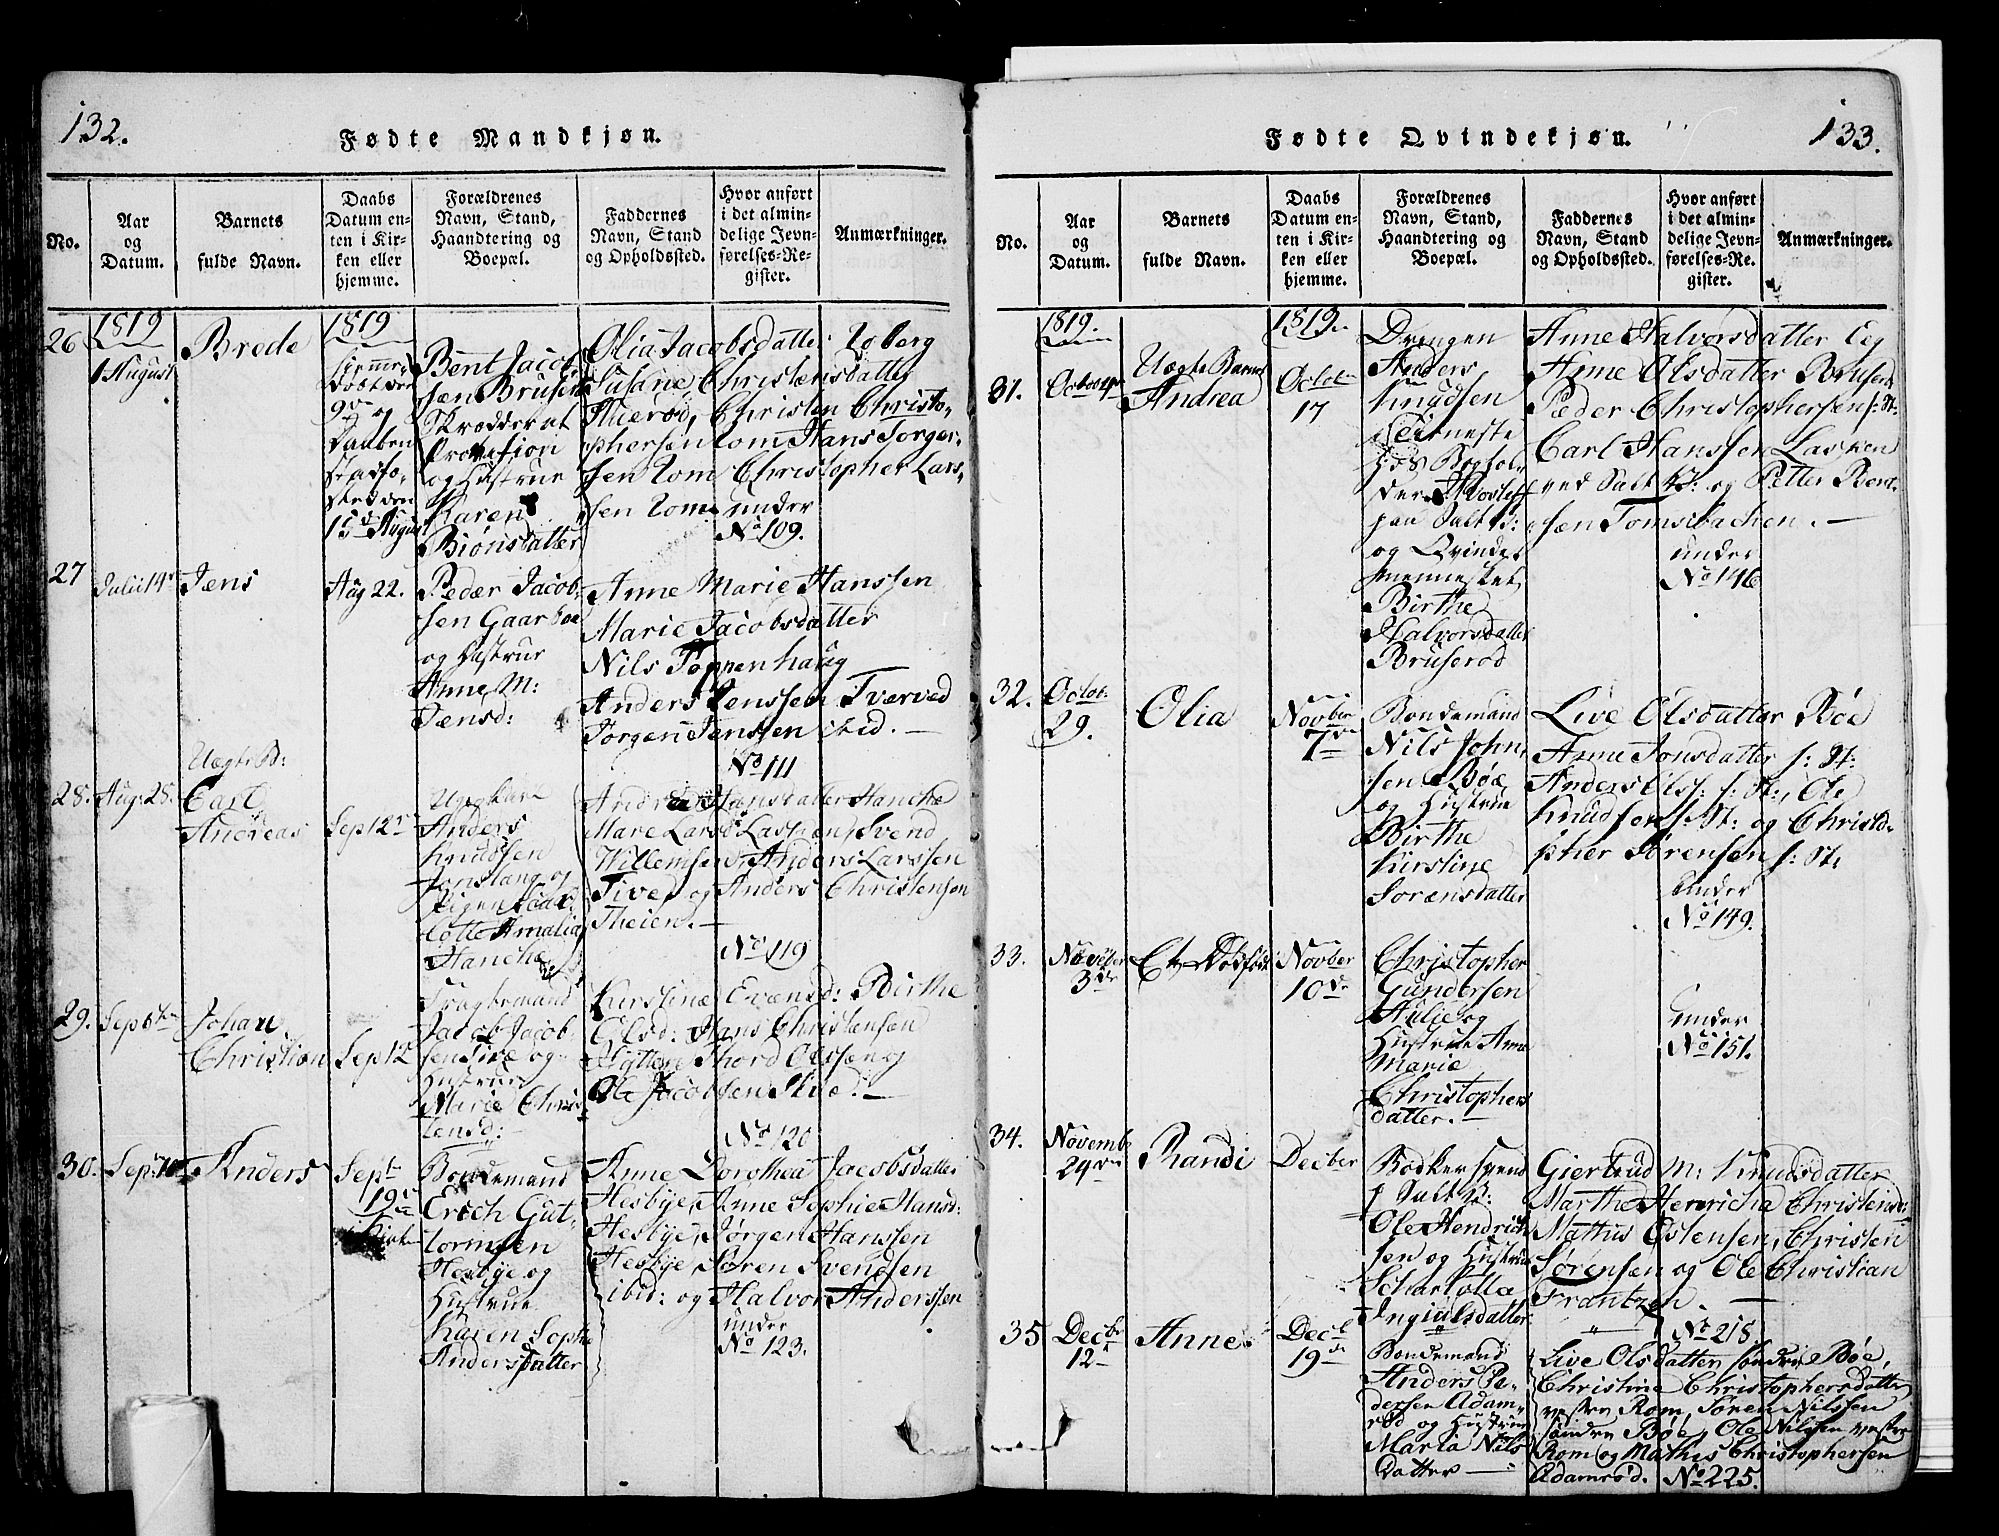 132.
Fødte Mandkjøn.
No.
Aar
og
Datum.
Barnets
fulde Navn.
Daabs
Datum en-
ten i Kir-
ken eller
hjemme.
Forældrenes
Navn, Stand,
Haandtering og
Boepæl.
Faddernes
Navn, Stand
og Opholdssted.
Hvor anført
i det almin-
delige Jevn-
førelses-Re-
gister.
Anmærkninger.
26
1819
1 August
Brede
1819
hjemme-
døbt den
9de og
Daaben
stadfæ-
sted den
15de August
Bent Jacob-
sen
Skrædder at
Profession
og Hustrue
Karen
Biønsdatter
Olia Jacobsdatter Loberg
Susane Christensdatter
Christen Christo-
phersen Rom Hans Torger-
sen Rom Christopher Lars-
sen Rom
under
No 109.
27
Julii 14de
Jens
Aug 22.
Peder Jacob-
sen Gaarboe
og Hustrue
Anne M:
Jensd:
Anne Marie Hanssen
Marie Jacobsdatter
Nils Toppenhaug
Anders Jenssen Tværved
Jørgen Jenssen ibid.
No 111
28.
Aug: 28.
Uægte B:
Carl
Andreas
Sep 12
Ungkarl
Anders
Knudsen
og
Pigen
lotte Amalia
Hanche
Hansdatter Hanche
Mare Lars Svend
Willemsen, Anders Larssen
Tived og Anders Christensen
Theien.
No 119
29.
Sep 6te
Johan
Christian
Sep 12
Jacob Jacob-
sen og
Hustrue
Marie Chris-
tensd:
Kirstine Evensd: Birthe
Olsd: Hans Christensen
Thord Olssen og
Ole Jacobsen
No 120
30.
Sep: 10
Anders
Septbr
19de
i Kirken
Bondemand
Erich Gut-
tormsen
Hesbye og
Hustrue
Karen Sophie
Andersdatter
Anne Dorothea Jacobsdatter
Hesbye, Anne Sophie Hansd:
Hesbye, Jørgen Hanssen
Hesbye, Søren Svendsen
ibid: og Halvor Anderssen
under
No 123.
133.
Fødte Qvindekjøn.
No.
Aar
og
Datum.
Barnets
fulde Navn.
Daabs
Datum en-
ten i Kir-
ken eller
hjemme.
Forældrenes
Navn, Stand,
Haandtering og
Boepæl.
Faddernes
Navn, Stand
og Opholdssted.
Hvor anført
i det almin-
delige Jevn-
førelses-Re-
gister.
Anmærkninger.
31.
1819.
Octob 4de
Uægte Barn
Andrea
1819.
Octobr
17
Drengen
Anders
Knudsen
tieneste
hosBoghol-
der
paa Salt V:
og Qvinde-
mennesket
Birthe
Halvorsdatter
Bruserød
Anne Halvorsdatter Eeg
Anne Olsdatter Bruserød
Peder Christophersen s: St:
Carl Hanssen Lasken
ved Salt V: og Petter Bent-
sen Tomsbachen.
under
No 146
32.
Octob:
29.
Olia
Novber
7de
Bondemand
Nils John-
sen Bøe
og Hustrue
Birthe
Kirstine
Sorensdatter
Live Olsdatter Bøe
Anne Jonsdatter s: St:
Anders Olss: s: St:, Ole
Knudsen s: St: og Christo-
pher Sørensen s: St:
Under
No 149.
33.
November
3de
Et Dødfødt
Novber
10de
Christopher
Gundersen
og
Hustrue Anne
Marie
Christophers
datter.
under
No 151.
34.
Novembr
24de
Randi
Decber
Bødkersvend
Salt V:
Ole Hendrich-
sen og Hustrue
Scharlotta
Ingialsdatter
Giertrud M: Knudsdatter
Marthe Henricha Christensd:
Mathus Ostensen, Christen
Sørensen og Ole Christian
Frantzen.
No 218
35
Decbr
12
Anne
Decb
19de
Bondemand
Anders Pe-
dersen Adam-
rød og Hustrue
Maria Nils
datter
Live Olsdatter søndre Bøe,
Christine Christophersdatter
vestre Rom, Søren Nilssen
søndre Bøe, Ole Nilssen vestre
Rom og Mathis Christophersen
Adamrød.
No 225.